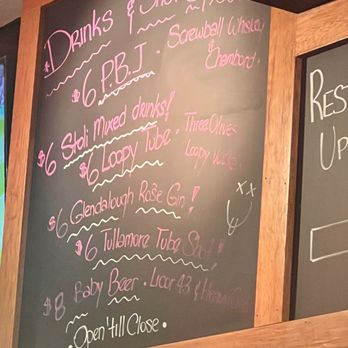 Drinks & Shot
$6 P.B.J - Screwball Whiskey
& Chambord.
$6 Stoli Mixed drinks!
$6 Loopy Tube - Three Olives
Loopy Vodka.
$6 Glendalough Rose Gin!
$6 Tullamore Tube Shot!
$8 Baby Beer. Licor 43 &
• Open 'till Close •
Res
Up